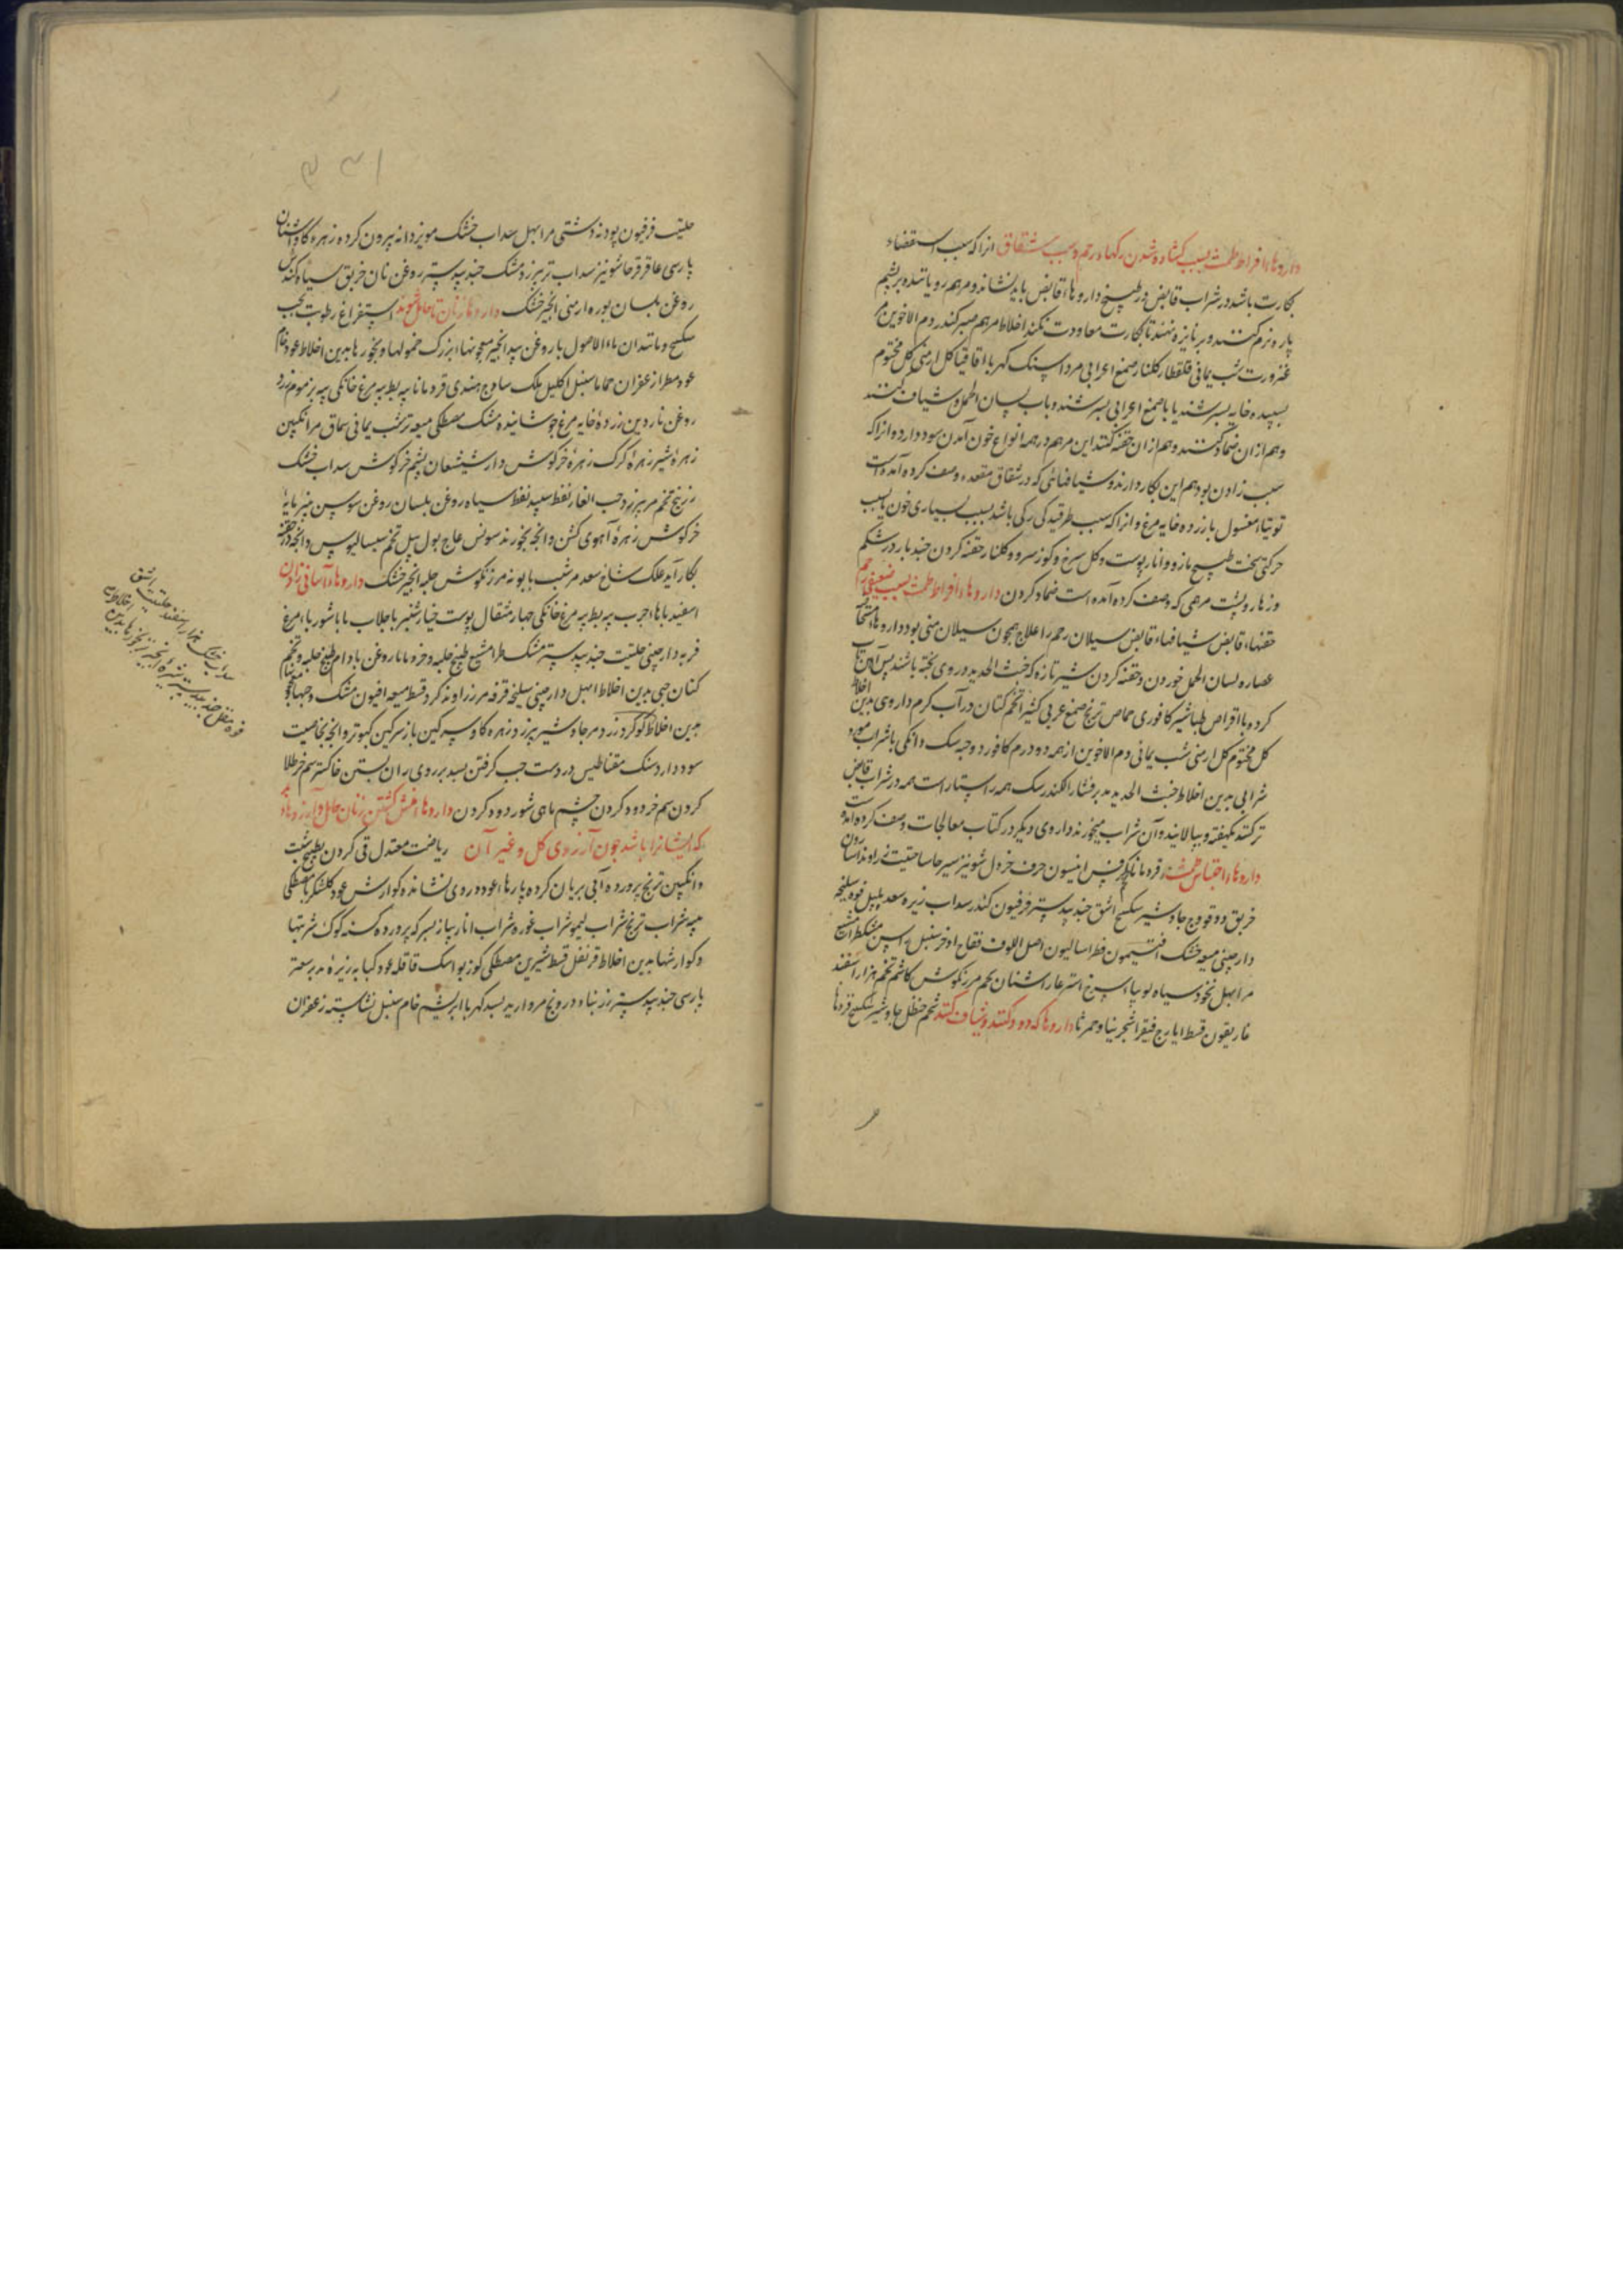 داروهاء افراط طمث بسبب کشاده شدن رکهاء رحم و سبب شقاق ازا که سبب استقضاء
بکارت باشد در شراب قابض و در طبیخ داروهاء قابض باید نشاند و مرهم رویاننده بر پشم
پاره نرم کنند و بر نایزه نهند تا بکارت معاودت نکند اخلاط مرهم صبر کندر دم الاخوین مر
عنزروت شب یمانی قلقطار کلنار صمغ اعرابی مرداسنک کهربا اقاقیا کل ارمنی کل مختوم
بسپیده خایه بسرشند یا با صمغ اعرابی بسرشند و باب لسان الحمل و شیاف کنند
و هم ازان ضماد کنند و هم ازان حقنه کنند این مرهم در همه انواع خون آمدن سود دارد و ازا که
سبب زادن بود هم این بکار دارند و شیافهائی که در شقاق مقعد وصف کرده آمده است
توتیاء مغسول با زرده خایه مرغ و ازا که سبب طرقیدکی رکی باشد بسبب بسیاری خون یا بسبب
حرکتی سخت طبیخ مازو و انار پوست و کل سرخ و کوز سرو و کلنار حقنه کردن چند بار و در شکم
و زهار و پشت مرهمی که وصف کرده آمده است ضماد کردن داروهاء افراط طمث بسبب ضعیفی رحم
حقنهاء قابض شیافهاء قابض سیلان رحم را علاج همچون سیلان منی بود داروهاء
عصاره لسان الحمل خوردن و حقنه کردن شیر تازه که خبث الحدید در وی پخته باشند پس آهن تاب
کرده با اقراص طباشیر کافوری حماض ترنج صمغ عربی کثیرا تخم کتان در آب کرم داروی بدین اخلاط
کل مختوم کل ارمنی شب یمانی دم الاخوین از همه ده درم کافور دو حبه سک دانکی با شراب مورد
شرابی بدین اخلاط خبث الحدید مدبر فشار الکندر سک همه راستاراست همه در شراب قابض
ترکنند یکهفته و بپالایند و آن شراب میخورند داروی دیکر در کتاب معالجات وصف کرده آمده است
داروهاء احتباس طمث قردمانا کرفس انیسون حرف خردل شونیز سیر حاشا حلتیت زراوند اسارون
خربق دوقو وج جاوشیر سکبینج اشق جندبیدستر فرفیون کندر سداب زیره سعد پلپل فوه سلیخه
دارچینی میعه خشک افتیمون فطراسالیون اصل اللوف فقاح اذخر سنبل مشکطرامشیع
مر ابهل نخود سیاه لوبیاء سرخ اشنان مرزنکوش کاشم تخم هزاراسفند
غاریقون قسط ایارج فیقرا شجرینا و حمرثا داروها که دود کنند و شیاف کنند شحم حنظل جاوشیر سکبینج قردمانا
حلتیت فرفیون پودنه دشتی مر ابهل سداب خشک مویز دانه بیرون کرده زهره کاو اشنان
پارسی عاقرقرحا شونیز سداب تر بیرزد مشک جندبیدستر روغن نان خربق سیاه کندش
روغن بلسان بوره ارمنی انجیر خشک داروها زنان تا حامل شوند استفراغ رطوبت بحب
سکبینج و مانند ان ماء الاصول با روغن بیدانجیر معجونهاء بزرک حمولها و بخورها بدین اخلاط عود خام
عود مطرا زعفران حماما سنبل اکلیل ملک ساذج هندی قردمانا پیه بط پیه مرغ خانکی پیه بز موم زرد
روغن ناردین زرده خایه مرغ جوشانیده مشک مصطکی میعه تر شب یمانی سماق مر انکبین
زهره شیر زهره کرک زهره خرکوش دارشیشعان پشم خرکوش سداب خشک
زرنیخ تخم مر بیرزد حب الغار نفط سپید نفط سیاه روغن بلسان روغن سوسن پنیرمایه
خرکوش زهره آهوی کشن و انچه بخورند سونس عاج بول پیل تخم سیسالیوس و انچه در حقنه
بکار آید علک شاخ سعد مر شب بابونه مرزنکوش حلبه انجیر خشک داروهاء آسانی زادن
اسفیدباهاء چرب پیه بط پیه مرغ خانکی چهار مثقال پوست خیارشنبر با جلاب یا با شوربا مرغ
فربه دارچینی حلتیت جندبیدستر مشک طرامشیع طبیخ حلبه و خرما با روغن بادام طبیخ حلبه و تخم
کتان حبی بدین اخلاط ابهل دارچینی سلیخه قرفه مر زراوند کرد قسط میعه افیون مشک و حبهاء
بدین اخلاط کوکرد زرد مر جاوشیر بیرزد زهره کاو سرکین باز سرکین کبوتر و انچه بخاصیت
سود دارد سنک مقناطیس در دست چپ کرفتن بسد بر روی ران بستن خاکستر سم خر طلا
کردن سم خر دود کردن چشم ماهی شور دود کردن داروهاء منش کشتن زنان حامل و آرزوهاء بد
که ایشانرا باشد چون آرزوی کل و غیر آن ریاضت معتدل قی کردن بطبیخ شبت
و انکبین ترنج پرورده آبی بریان کرده پارهاء عود در وی نشانده کوارش عود کلشکر با مصطکی
میبه شراب ترنج شراب لیمو شراب غوره شراب انار پیاز بسرکه پرورده کسنه کوک شربتها
و کوارشها بدین اخلاط قرنفل قسط شیرین مصطکی کوز بوا سک قاقله عود کبابه زیره مدبر سعتر
پارسی جندبیدستر زرنباد درونج مروارید بسد کهربا ابریشم خام سنبل نشاسته زعفران
سداب خشک هزار اسفند حلتیت اشق
فوه مقل جندبیدستر